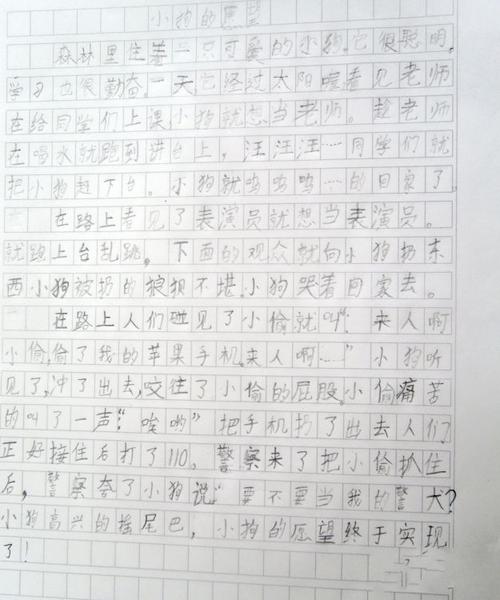 小狗的愿望
森林里住着一只可爱的小狗。它很聪明,
学习也很勤奋。一天,它经过太阳喧看见老师
在给同学们上课,小狗就想当老师。趁老师
在喝水就跑到讲台上,汪汪汪……同学们就
把小狗赶下台。小狗就呜呜呜……的回家了。
在路上看见了表演员就想当表演员。
就跑上台乱跳。下面的观众就向小狗扔东
西小狗被扔的狼狈不堪。小狗哭着回家去。
在路上人们碰见了小偷就叫“来人啊
小偷,偷了我的苹果手机,来人啊……”小狗听
见了,冲了出去,咬住了小偷的屁股,小偷痛苦
的叫了一声:“唉哟”把手机扔了出去人们
正好接住后打了110,警察来了把小偷抓住
后,警察夸了小狗说“要不要当我的警犬?
小狗高兴的摇尾巴,小狗的愿望终于实现
了!